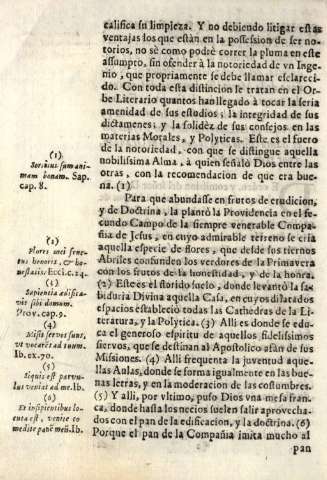 califica su limpieza. Y no debiendo litigar estas
ventajas los que estàn en la possession de ser no-
torios, no sè como podrè correr la pluma en este
assumpto, sin ofender à la notoriedad de vn Inge-
nio, que propriamente se debe llamar esclareci-
do. Con toda esta distincion le tratan en el Or-
be Literario quantos han llegado à tocar la seria
amenidad de sus estudios; la integridad de sus
dictamenes; y la solidèz de sus consejos en las
materias Morales, y Polyticas. Este es el fuero
de la notoriedad, con que se distingue aquella
nobilissima Alma, à quien señalò Dios entre las
otras, con la recomendacion de que era bue-
na. (1)
Para que abundasse en frutos de erudicion,
y de Doctrina, la plantò la Providencia en el fe-
cundo Campo de la siempre venerable Compa-
ñia de Jesus, en cuyo admirable terreno se cria
aquella especie de flores, que desde sus tiernos
Abriles confunden los verdores de la Primavera
con los frutos de la honestidad, y de la honra.
(2) Este es el florido suelo, donde levantò la sa-
biduria Divina aquella Casa, en cuyos dilatados
espacios estableciò todas las Cathedras de la Li-
teratura, y la Polytica. (3) Alli es donde se edu-
ca el generoso espiritu de aquellos fidelissimos
siervos, que se destinan al Apostolico afan de sus
Missiones. (4) Alli frequenta la juventud aque-
llas Aulas, donde se forma igualmente en las bue-
nas letras, y en la moderacion de las costumbres.
(5) Y alli, por vltimo, puso Dios vna mesa fran-
ca, donde hasta los necios suelen salir aprovecha-
dos con el pan de la edificacion, y la doctrina. (6)
Porque el pan de la Compañia imita mucho al
pan
(1)
Sortitus sum ani-
mam bonam. Sap.
cap. 8.
Flores mei fruc-
tus honoris, & ho-
nestatis. Eccl. c. 24.
Sapientia ædifica-
vit sibi domum.
Prov. cap. 9.
(4)
Misit servos suos,
vt vocaret ad
Ib.
(5)
Siquis est parvu-
lus veniat ad me. Ib.
(6)
Et insipientibus lo-
cuta est, venite co-
medite panē meū. Ib.